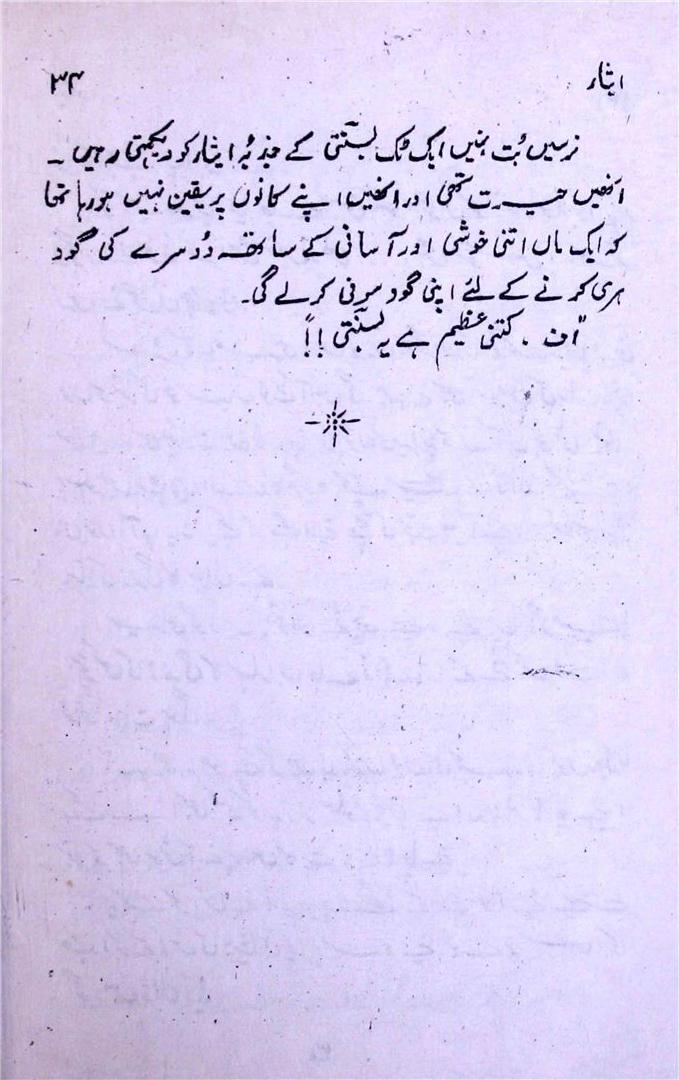 ایثار
۳۴
نرسیں بُت بنیں ایک ٹک بسنتی کے جذبۂ ایثار کو دیکھتی رہیں ۔
انھیں حیرت تھی اور انھیں اپنے کانوں پر یقین نہیں ہو رہا تھا
کہ ایک ماں اتنی خوشی اور آسانی کے ساتھ دوسرے کی گود
ہری کرنے کے لئے اپنی گود سونی کر لے گی۔
"اف ۔ کتنی عظیم ہے یہ بسنتی !!"